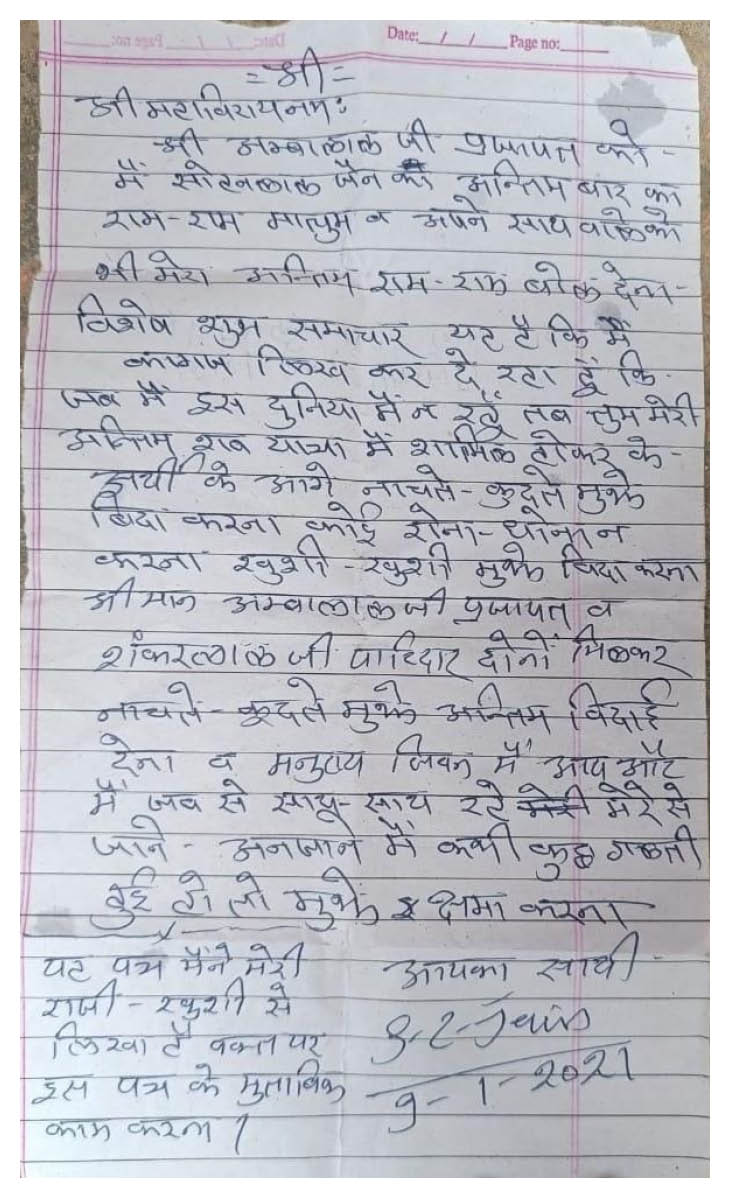 Date: / / Page no:
= श्री =
श्री महाविरायनमः
श्री अम्बालाल जी प्रजापत को -
मैं सोहनलाल जैन का अन्तिम बार का
राम-राम मालुम व अपने साथ वाले को
भी मेरा अन्तिम राम-राम बोल देना -
विशेष शुभ समाचार यह है कि मैं
कागज लिख कर दे रहा हूँ कि
जब मैं इस दुनिया मैं न रहूँ तब तुम मेरी
अन्तिम शव यात्रा मैं शामिल होकर के -
अर्थी के आगे नाचते-कुदते मुझे
बिदा करना कोई रोना-धोना न
करना खुशी-खुशी मुझे विदा करना
श्रीमान अम्बालाल जी प्रजापत व
शंकरलाल जी पाटिदार दोनों मिलकर
नाचते-कूदते मुझे अन्तिम विदाई
देना व मनुष्य जिवन मैं आप और
मैं जब से साथ-साथ रहे मेरे से
जाने-अनजाने मैं कभी कुछ गलती
हुई हो तो मुझे क्षमा करना
यह पत्र मैंने मेरी
राजी-खुशी से
लिखा है वक्त पर
इस पत्र के मुताबिक
काम करना ।
आपका साथी
S.L. Jain
9-1-2021